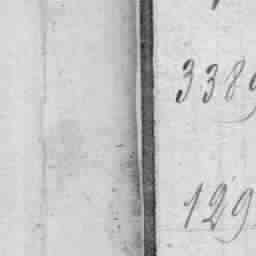 3389
129